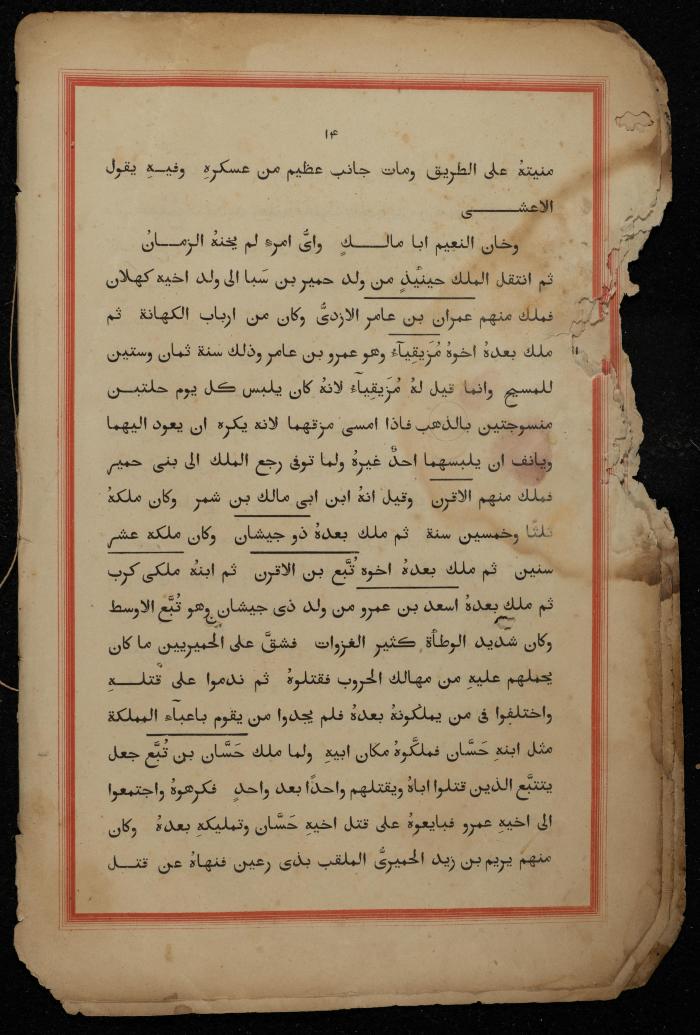 ١٤
منيتهُ على الطريق ومات جانب عظيم من عسكرهِ وفيـهِ يقول
الاعشـــــى
وخان النعيم ابا مالـــكٍ واىُّ امرءٍ لم يخنهُ الزمـــانُ
ثم انتقل الملك حينئذٍ من ولد حمير بن سَبا الى ولد اخيهِ كهلان
فملك منهم عمران بن عامر الازدىُّ وكان من ارباب الكهانة ثم
ملك بعدهُ اخوهُ مُزَيقِيآء وهو عمرو بن عامر وذلك سنة ثمان وستين
للمسيح وانما قيل لهُ مُزَيقِيآء لانهُ كان يلبس كل يوم حلتيـن
منسوجتين بالذهب فاذا امسى مزقهما لانه يكره ان يعود اليهما
ويانف ان يلبسهما احدٌ غيرهُ ولما توفى رجع الملك الى بنى حمير
فملك منهم الاقرن وقيل انهُ ابن ابى مالك بن شمر وكان ملكهُ
ثلثًا وخمسين سنة ثم ملك بعدهُ ذو جيشان وكان ملكه عشر
سنين ثم ملك بعدهُ اخوه تُبَّع بن الاقرن ثم ابنهُ ملكى كرب
ثم ملك بعدهُ اسعد بن عمرو من ولد ذى جيشان وهو تُبَّع الاوسط
وكان شديد الوطأة كثير الغزوات فشقَّ على الحميريين ما كان
يحملهم عليهِ من مهالك الحروب فقتلوهُ ثم ندموا على قتلــهِ
واختلفوا فى من يملكونهُ بعدهُ فلم يجدوا من يقوم باعبآء المملكة
مثل ابنهِ حَسَّان فملَّكوهُ مكان ابيهِ ولما ملك حَسَّان بن تُبَّع جعل
يتتبَّع الذين قتلوا اباهُ ويقتلهم واحدًا بعد واحدٍ فكرهوهُ واجتمعوا
الى اخيهِ عمرو فبايعوهُ على قتل اخيهِ حَسَّان وتمليكهِ بعدهُ وكان
منهم يريم بن زيد الحميرىُّ الملقب بذى رعين فنهاهُ عن قتــل